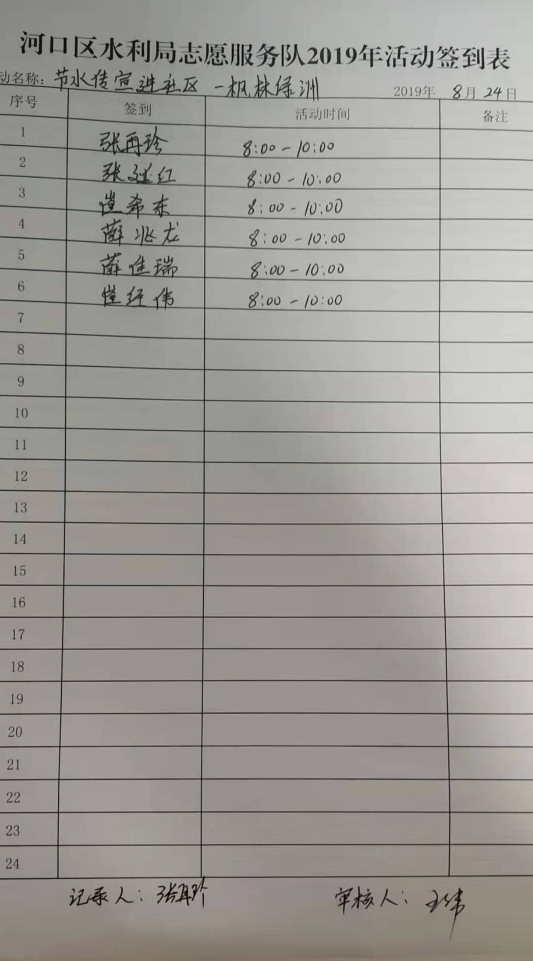 河口区水利局志愿服务队2019年活动签到表
动名称：节水宣传进社区 一枫林绿洲 2019年 8月24日
序号 签到 活动时间 备注
1 张再珍 8:00-10:00
2 张延红 8:00-10:00
3 希东 8:00-10:00
4 薛兆龙 8:00-10:00
5 薛佳瑞 8:00-10:00
6 伟 8:00-10:00
7
8
9
10
11
12
13
14
15
16
17
18
19
20
21
22
23
24
记录人：张再珍 审核人：王伟